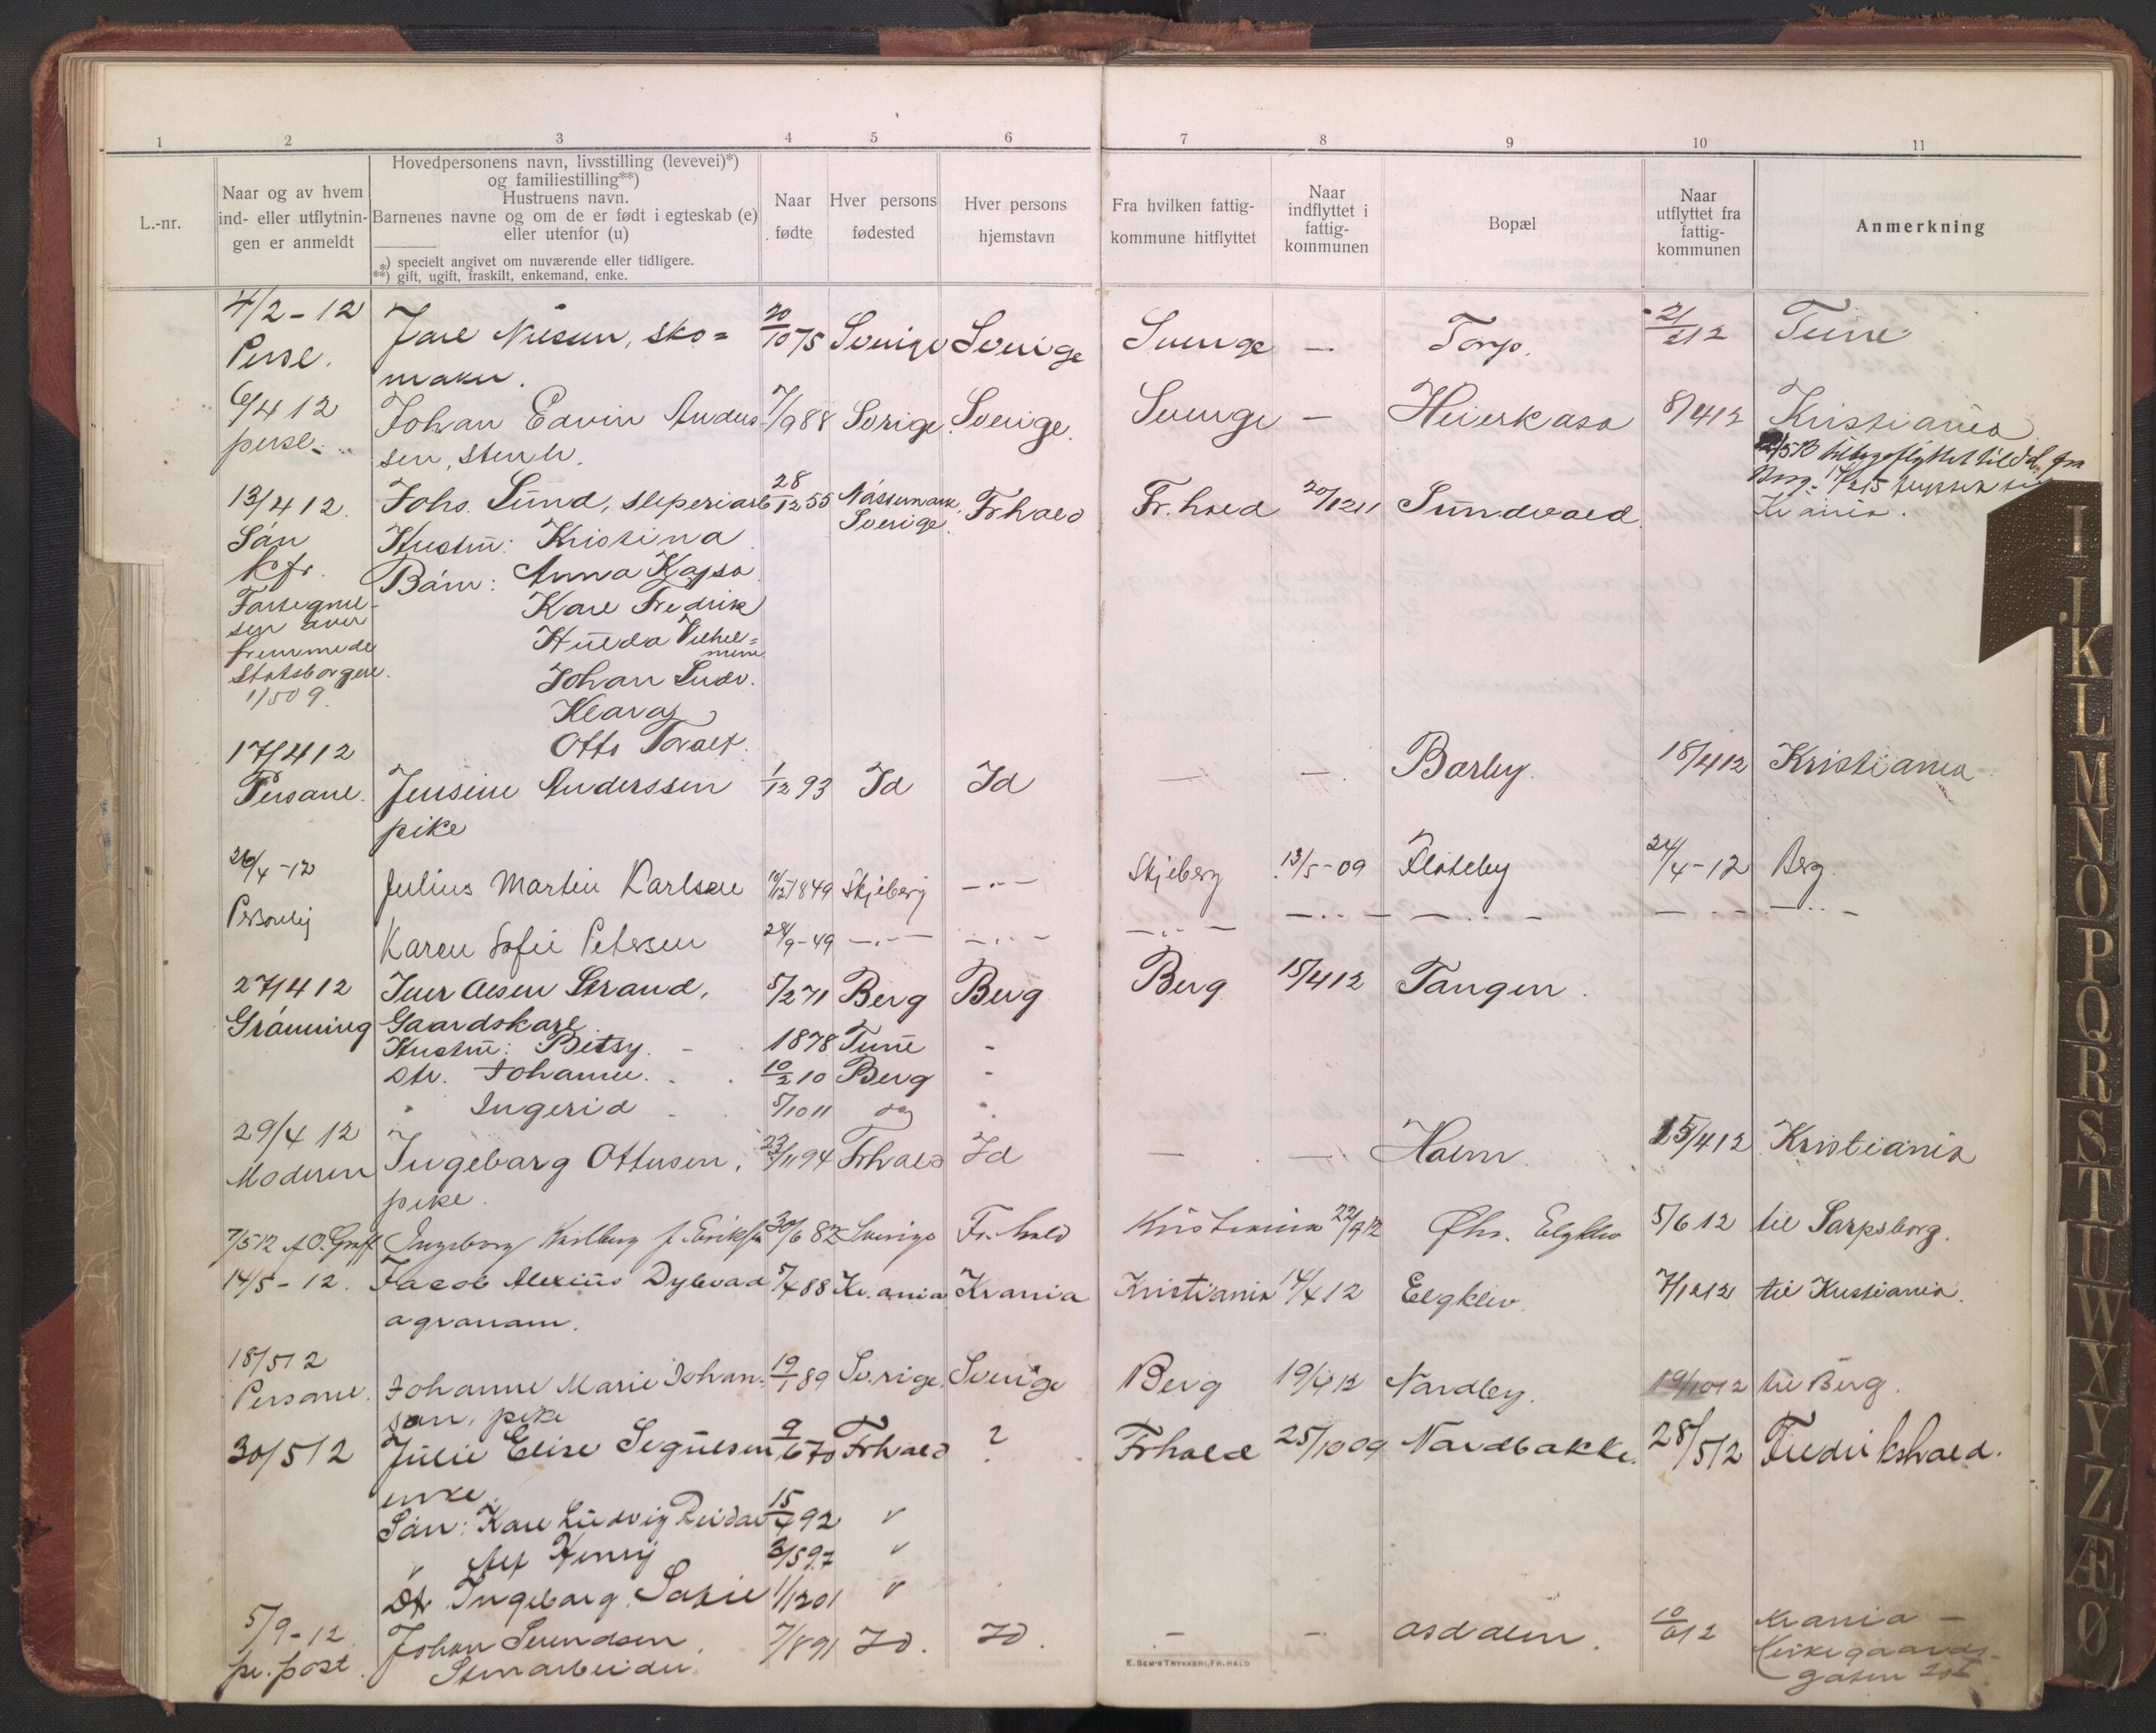 1 2 3 4 5 6 7 8 9 10 11
L.-nr.
Naar og av hvem
ind- eller utflytnin-
gen er anmeldt
Hovedpersonens navn, livsstilling (levevei)*)
og familiestilling**)
Hustruens navn.
Barnenes navne og om de er født i egteskab (e)
eller utenfor (u)
*) specielt angivet om nuværende eller tidligere.
**) gift, ugift, fraskilt, enkemand, enke.
Naar
fødte
Hver persons
fødested
Hver persons
hjemstavn
Fra hvilken fattig-
kommune hitflyttet
Naar
indflyttet i
fattig-
kommunen
Bopæl
Naar
utflyttet fra
fattig-
kommunen
Anmerkning
4/2-12 Karl Nilsen, sko= 20/10 75 Sverige Sverige Sverige — Torp. 21/2 12 Tune
Persl. maker.
6/4 12 Johan Edvin Anders- 7/9 88 Sverige Sverige. Sverige — Heierkasa 8/4 12 Kristiania
persl. sen, stenh.
tilbageflyttet til Id fra
Berg.
Kr.ania.
13/4 12. Johs. Lund, sleperiarb 28/12 55 Nössemark, Sverige. Frhald Fr.hald 20/12 11 Sundvold.
Sön Hustru: Kristina
Kfr. Børn: Anna Kajsa
Fortegnel- Karl Fredrik
sen over Hulda Vilhel=
fremmede mine
Statsborgere. Johan Ludv.
1/5 09. Klara
Otto Toralf.
17/4 12
Personl. Jensine Anderssen 1/12 93 Id Id — — Børby. 18/4 12 Kristiania
pike
26/4-12 Julius Martin Karlsen 1849 Skjeberg —„— Skjeberg 13/5-09 Kloteby 24/4-12 Berg.
Personlig Karen Sofie Petersen 28/9-49 —„— —„— —„— —„— —„— —„— —„—
27/4 12 Iver Olsen Strand, 5/2 71 Berg Berg Berg 15/4 12 Tangen.
Grønning Gaardskarl
Hustru: Betsy. 1878 Tune -
Dtr. Johanne. 10/2 10 Berg -
" Ingerid 5/10 11 do
29/4 12 Ingeborg Ottersen, 23/11 94 Frhald Id — — Holm. 15/4 12 Kristiania
Moderen pike.
7/5 12 A.O. Graff Ingeborg Karlberg f. Eriksen 30/6 82 Sverige Fr.hald Kristiania Øhr. Elgklev 5/6 12 til Sarpsborg.
14/5-12. Jacob Alexius Dybvad 5/4 88 Kr.ania Krania Kristiania 14/4 12 Elgklev. 7/12 12 til Kristiania.
agronom.
18/5 12
Personl. Johanne Marie Johan- 19/1 89 Sverige. Sverige Berg 19/4 12 Nordby. 19/10 12 til Berg.
son, pike
30/5 12 Julie Elise Sigulsen 9/6 70 Frhald ? Frhald 25/10 09 Nordbakke. 28/5 12 Fredrikshald.
enke.
Søn: Karl Ludvig Reidar 15/4 92 "
" Alf Henry 3/5 97 "
Dtr Ingeborg Sofie 1/12 01 "
5/9-12 Johan Svendsen, 7/8 91 Id. Id. — — Asdalen. Krania —
pr. post. Stenarbeider. Kirkegaards-
gaten
E. SEM'S TRYKKERI, FR.HALD
I J K L M N O P Q R S T U W X Y Z Æ Ø